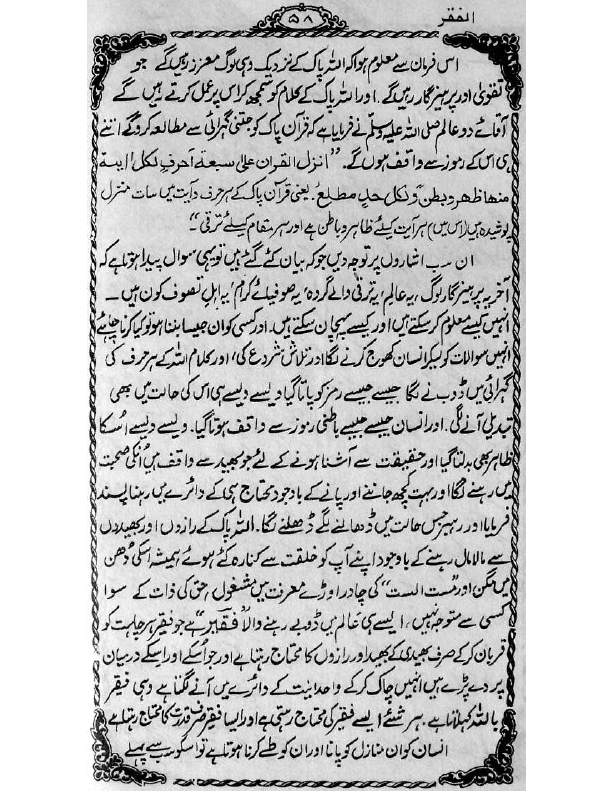 الفقر
۵۸
اس فرمان سے معلوم ہوا کہ اللہ پاک کے نزدیک وہی لوگ معزز ہوں گے جو
تقویٰ اور پرہیزگار رہیں گے۔ اور اللہ پاک کے کلام کو سمجھ کر اس پر عمل کرتے رہیں گے
آقائے دو عالم صلی اللہ علیہ وسلم نے فرمایا ہے کہ قرآن پاک کو جتنی گہرائی سے مطالعہ کروگے اتنے
ہی اس کے رموز سے واقف ہوں گے۔ "انزل القران علیٰ سبعۃ احرفٍ لکل اٰیۃ
منھا ظھر و بطن و لکل حدٍ مطلع۔ یعنی قرآن پاک کے ہر حرف و آیت میں سات منزل
پوشیدہ ہیں (اس میں) ہر آیت کیلئے ظاہر و باطن ہے اور ہر مقام کیلئے ترقی"۔
ان سب اشاروں پر توجہ دیں جو کہ بیان کئے گئے ہیں تو یہی سوال پیدا ہوتا ہے کہ
آخر یہ پرہیزگار لوگ، یہ عالم، یہ ترقی والے گروہ، یہ صوفیائے کرام، یہ اہلِ تصوف کون ہیں۔
انہیں کیسے معلوم کرسکتے ہیں اور کیسے پہچان سکتے ہیں۔ اور کسی کو ان جیسا بننا ہو تو کیا کرنا چاہئے
انہیں سوالات کو لیکر انسان کھوج کرنے لگا اور تلاش شروع کی، اور کلام اللہ کے ہر حرف کی
گہرائی میں ڈوبنے لگا جیسے جیسے رمز کو پاتا گیا ویسے ویسے ہی اس کی حالت میں بھی
تبدیلی آنے لگی۔ اور انسان جیسے جیسے باطنی رموز سے واقف ہوتا گیا۔ ویسے ویسے اُسکا
ظاہر بھی بدلتا گیا اور حقیقت سے آشنا ہونے کے لئے جو بھید سے واقف ہیں اُنکی صحبت
میں رہنے لگا اور بہت کچھ جاننے اور پانے کے باوجود محتاج ہی کے دائرے میں رہنا پسند
فرمایا اور رہبر جس حالت میں ڈھالنے لگے ڈھلنے لگا۔ اللہ پاک کے رازوں اور بھیدوں
سے مالا مال رہنے کے باوجود اپنے آپ کو خلقت سے کنارہ کئے ہوئے ہمیشہ اسکی دُھن
میں مگن اور "مست الست" کی چادر اوڑے معرفت میں مشغول، حق کی ذات کے سوا
کسی سے متوجہ نہیں، ایسے ہی عالم میں ڈوبے رہنے والا "فقیر" ہے جو فقیر ہر چاہت کو
قربان کرکے صرف بھیدی کے بھید اور رازوں کا محتاج رہتا ہے اور جو اُسکے اور اسکے درمیان
پردے پڑے ہیں انہیں چاک کرکے واحدانیت کے دائرے میں آنے لگتا ہے وہی فقیر
باللہ کہلاتا ہے۔ ہر شئے ایسے فقیر کی محتاج رہتی ہے اور ایسا فقیر صرف قدرت کا محتاج رہتا ہے
انسان کو ان منازل کو پانا اور ان کو طے کرنا ہوتا ہے تو اسکو سب سے پہلے